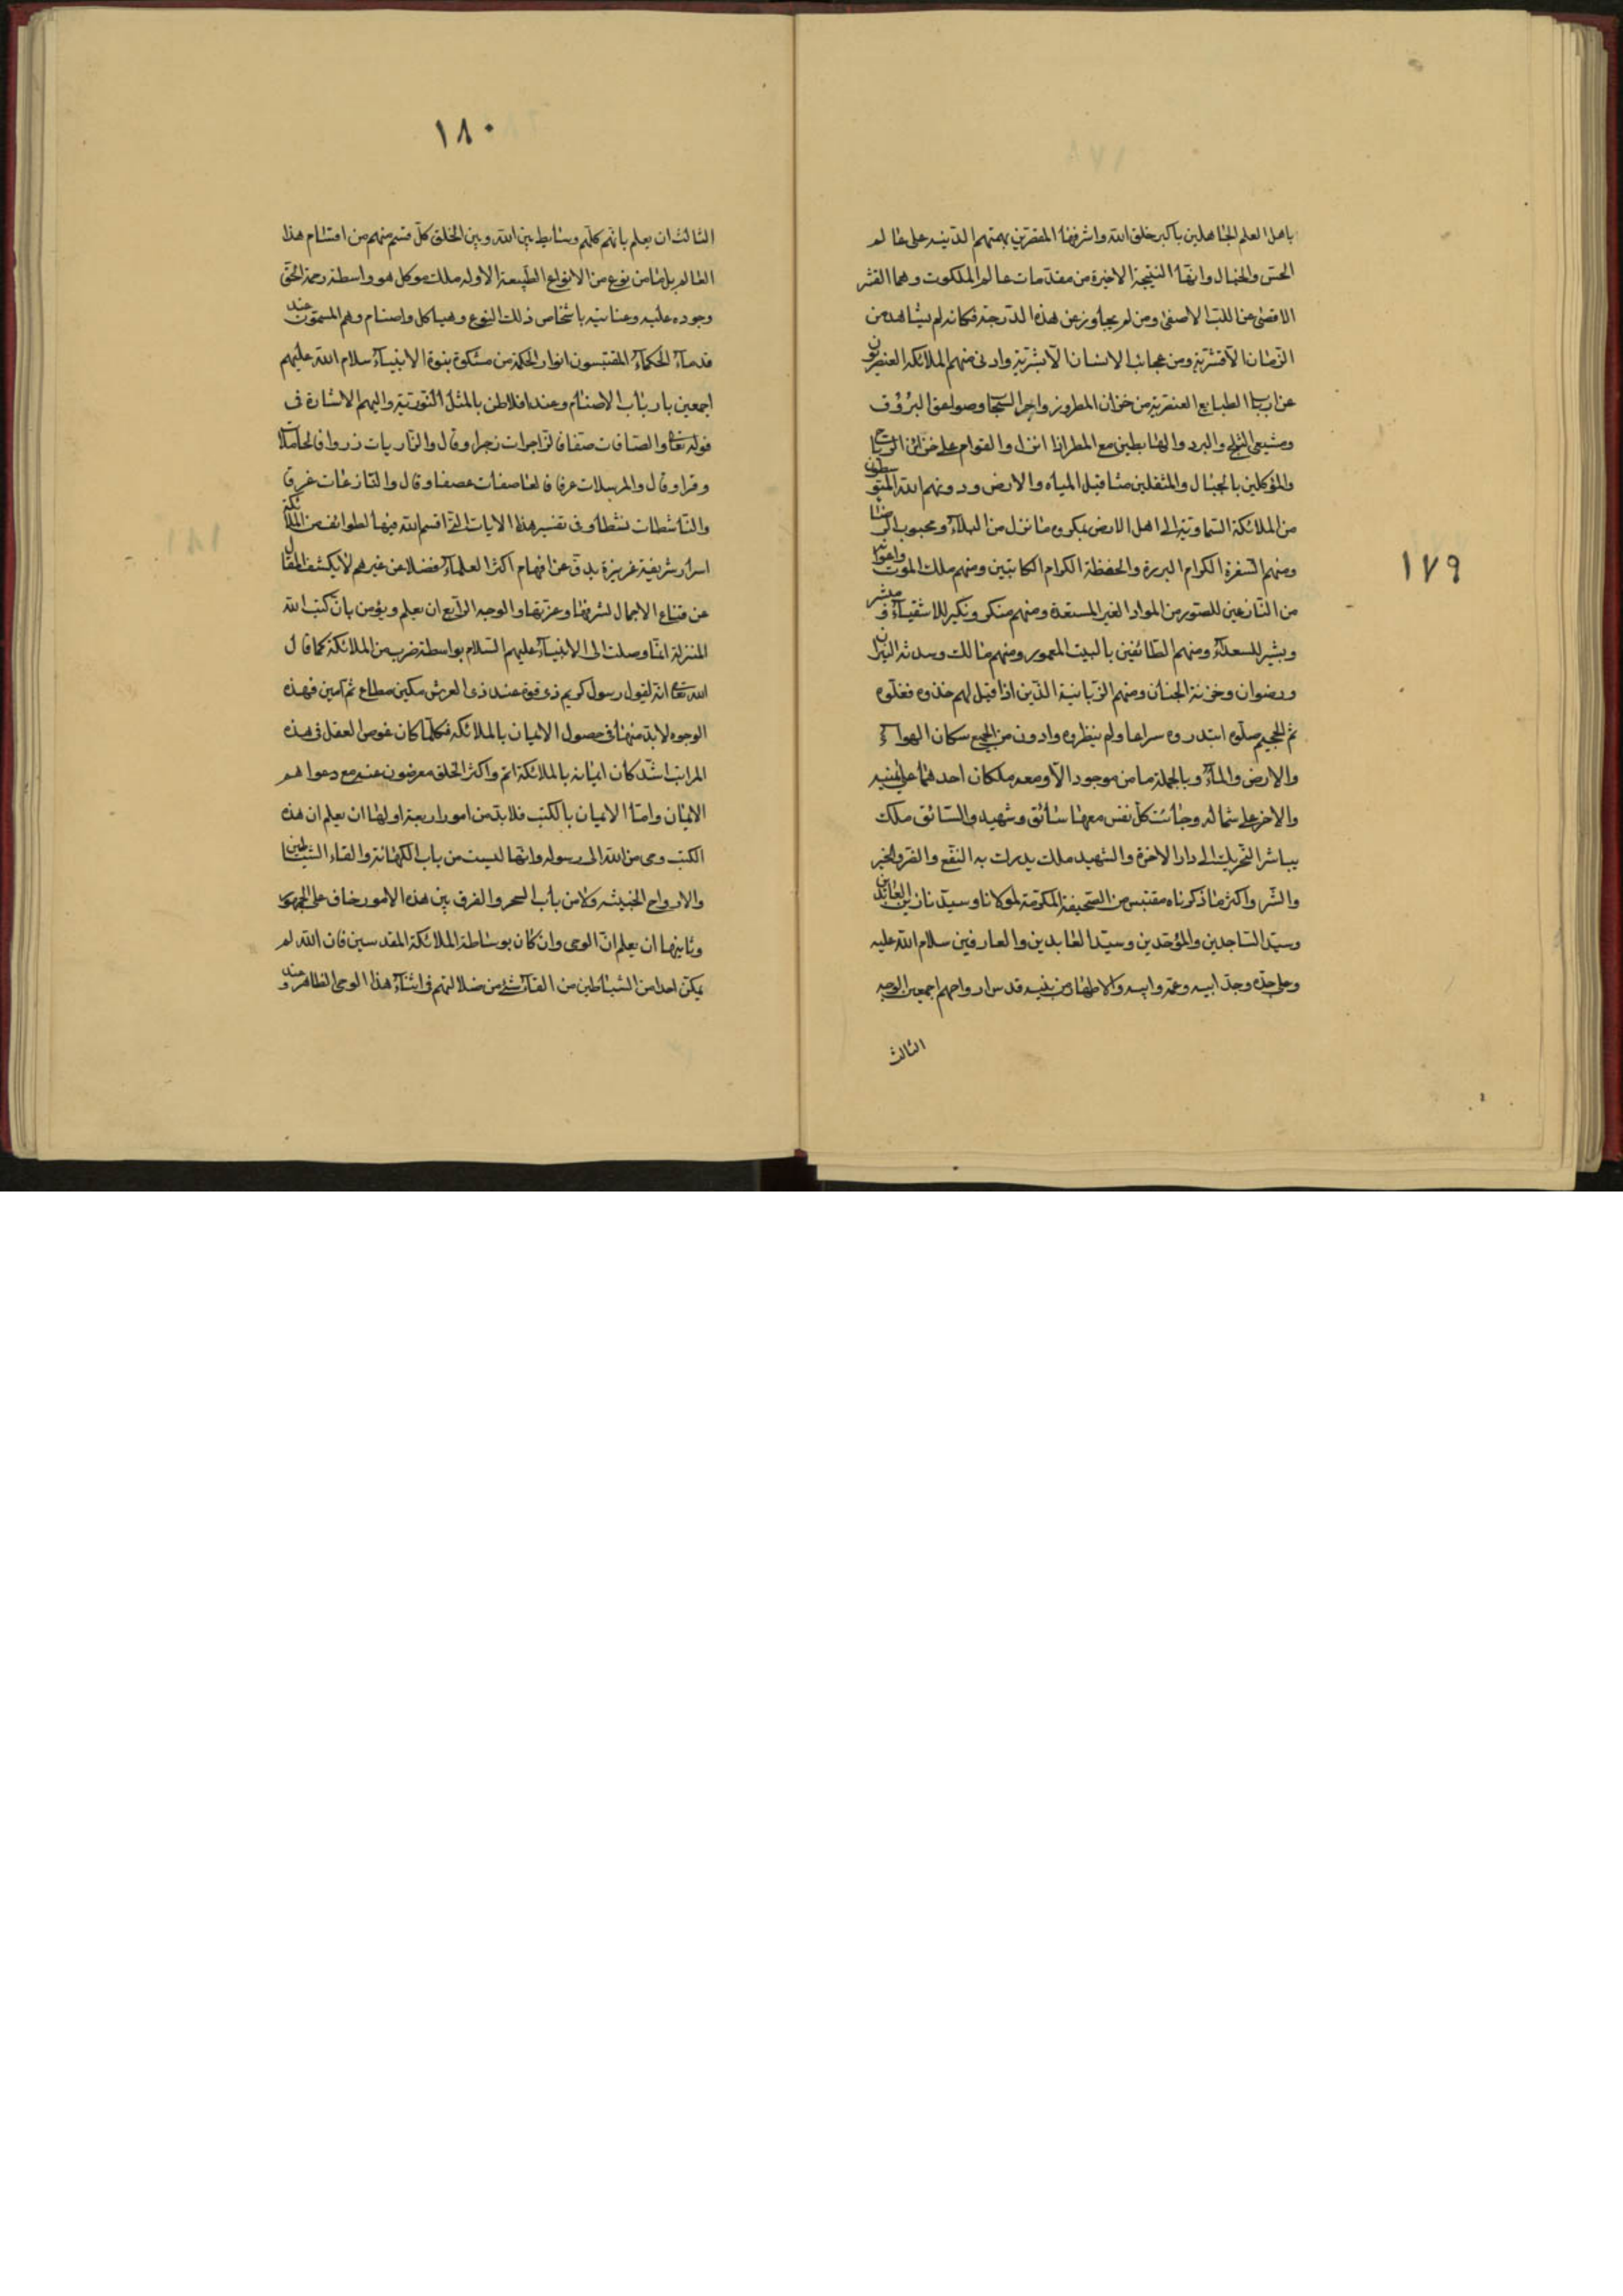 ١٧٩
باهل العلم الجاهلين باكبر خلق الله واشرفها المقصرين بهمتهم الدنية على عالم
الحس والخيال وانها النتيجة الاخيرة من مقدمات عالم الملكوت وهما القشر
الاقصى عن اللب الاصفى ومن لم يجاوز عن هذه الدرجة فكانه لم يشاهد من
الرمان الا قشرته ومن عجائب الانسان الا بشرته وادنى منهم الملائكة العنصريون
عن ارباب الطبايع العنصرية من خزان المطر وزواجر السحاب وصواعق البروق
ومشيعى الثلج والبرد والهابطين مع المطر اذا انزل والقوام على خزائن الرياح
والمؤكلين بالجبال والمثقلين مثاقيل المياه والارض ودونهم الله المتوسطون
من الملائكة السماوية الى اهل الارض بمكروه ما نزل من البلاء ومحبوب الرخاء
ومنهم السفرة الكرام البررة والحفظة الكرام الكاتبين ومنهم ملك الموت واعوانه
من النازعين للصور من المواد الغير المستعدة ومنهم منكر ونكير للاشقياء ومبشر
وبشير للسعداء ومنهم الطائفين بالبيت المعمور ومنهم مالك وسدنة النيران
ورضوان وخزنة الجنان ومنهم الزبانية الذين اذا قيل لهم خذوه فغلوه
ثم الجحيم صلوه ابتدروه سراعا ولم ينظروه وادون من الجميع سكان الهواء
والارض والماء وبالجملة ما من موجود الا ومعه ملكان احدهما على يمينه
والاخر على شماله وجائت كل نفس معها سائق وشهيد والسائق ملك
يباشر التحريك الى دار الاخرة والشهيد ملك يدرك به النفع والضر والخير
والشر واكثر ما ذكرناه مقتبس من الصحيفة المكرمة لمولانا وسيدنا زين العابدين
وسيد الساجدين والموحدين وسيد العابدين والعارفين سلام الله عليه
وعلى جده وجد ابيه وعمه وابيه والاطهار من بنيه قدس ارواحهم اجمعين الوجه
الثالث
١٨٠
الثالث ان يعلم بانهم كلهم وسايط بين الله وبين الخلق كل قسم منهم من اقسام هذا
العالم بل ما من نوع من الانواع الطبيعة الا وله ملك موكل هو واسطة رحمة الحق
وجوده عليه وعنايته باشخاص ذلك النوع وهياكل واصنام وهم المسمون عند
قدماء الحكماء المقتبسون انوار الحكمة من مشكوة نبوة الانبياء سلام الله عليهم
اجمعين بارباب الاصنام وعند افلاطن بالمثل النورية واليهم الاشارة فى
قوله تعا والصافات صفا فالزاجرات زجرا وقال والذاريات ذروا فالحاملات
وقرا وقال والمرسلات عرفا فالعاصفات عصفا وقال والنازعات غرقا
والناشطات نشطا وفى تفسير هذه الايات التى اقسم الله فيها لطوائف من الملائكة
اسرار شريفة غزيرة يدق عن افهام اكثر العلماء فضلا عن غيرهم لا يكشف المقال
عن قناع الاجمال لشرفها وعزتها والوجه الرابع ان يعلم ويؤمن بان كتب الله
المنزلة انما وصلت الى الانبياء عليهم السلام بواسطة ضرب من الملائكة كما قال
الله تعا انه لقول رسول كريم ذى قوة عند ذى العرش مكين مطاع ثم امين فهذه
الوجوه لا بد منها فى حصول الايمان بالملائكة فكلما كان غوص العقل فى هذه
المراتب اشد كان ايمانه بالملائكة اتم واكثر الخلق معرضون عنه مع دعواهم
الايمان واما الايمان بالكتب فلا بد من امور اربعة اولها ان يعلم ان هذه
الكتب وحى من الله الى رسوله وانها ليست من باب الكهانة والقاء الشياطين
والارواح الخبيثة ولا من باب السحر والفرق بين هذه الامور خاف على الجمهور
وثانيها ان يعلم ان الوحى وان كان بوساطة الملائكة المقدسين فان الله لم
يمكن احدا من الشياطين من القاء شئ من ضلالتهم فى اثناء هذا الوحى الظاهر و